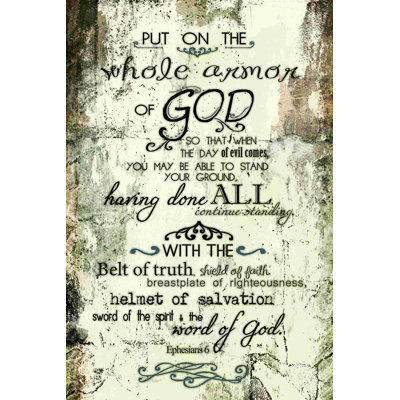 PUT ON THE
whole armor
OF GOD
SO THAT WHEN
THE DAY of evil comes,
YOU MAY BE ABLE TO STAND
YOUR GROUND,
having done ALL
continue standing,
WITH THE
Belt of truth, shield of faith
breastplate of righteousness,
helmet of salvation
sword of the spirit & the
word of God.
Ephesians 6